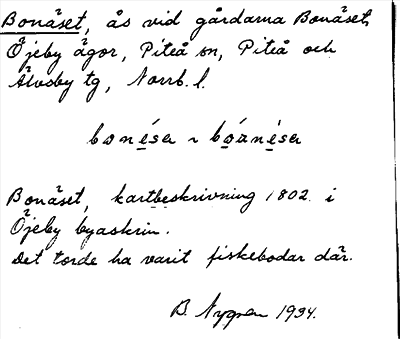 Bonäset, ås vid gårdarna Bonäset,
Öjeby ägor, Piteå sn, Piteå och
Älvsby tg, Norrb. l.
bonésa ~ bóanésa
Bonäset, kartbeskrivning 1802 i
Öjeby byaskrin.
Det torde ha varit fiskebodar där.
B. Nygren 1934.